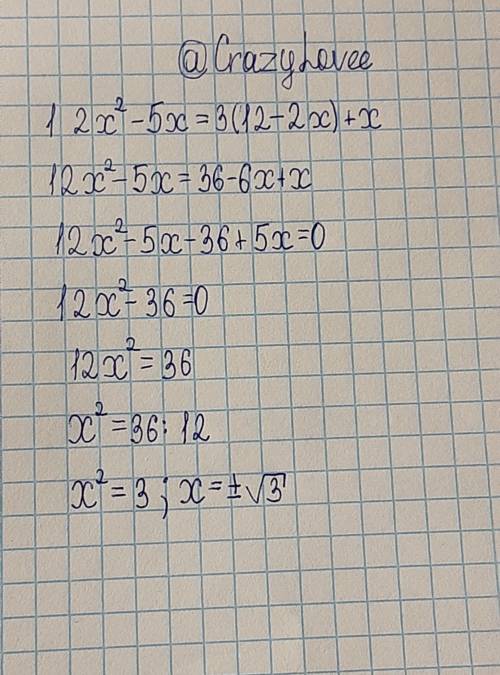 @CrazyLovee
1 2x² - 5x = 3(12 - 2x) + x
12x² - 5x = 36 - 6x + x
12x² - 5x - 36 + 5x = 0
12x² - 36 = 0
12x² = 36
x² = 36 : 12
x² = 3 ; x = ±√3